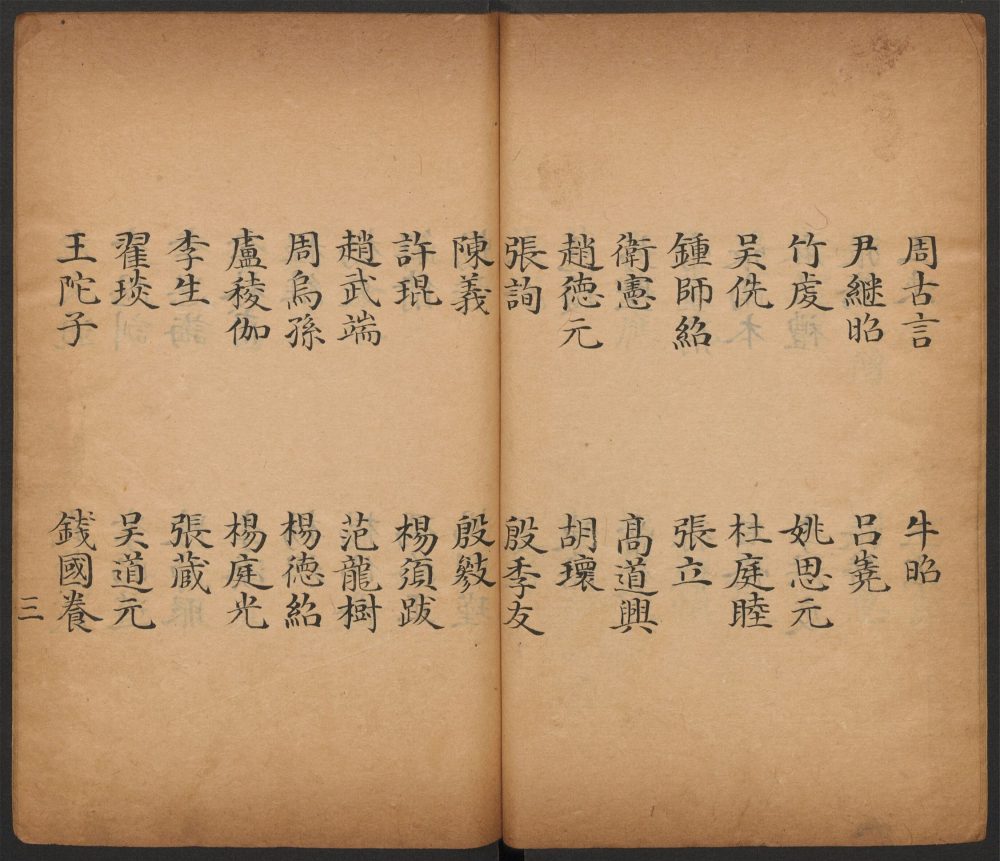 周古言 牛昭
尹継昭 吕嶤
竹虔 姚思元
吴侁 杜庭睦
鍾師紹 張立
衛憲 髙道興
趙徳元 胡壞
張詢 殷季友
陳義 殷敠
許琨 楊須跋
趙武端 范龍樹
周烏孫 楊徳紹
盧稜伽 楊庭光
李生 張蔵
翟琰 吴道元
王陀子 錢國養
三